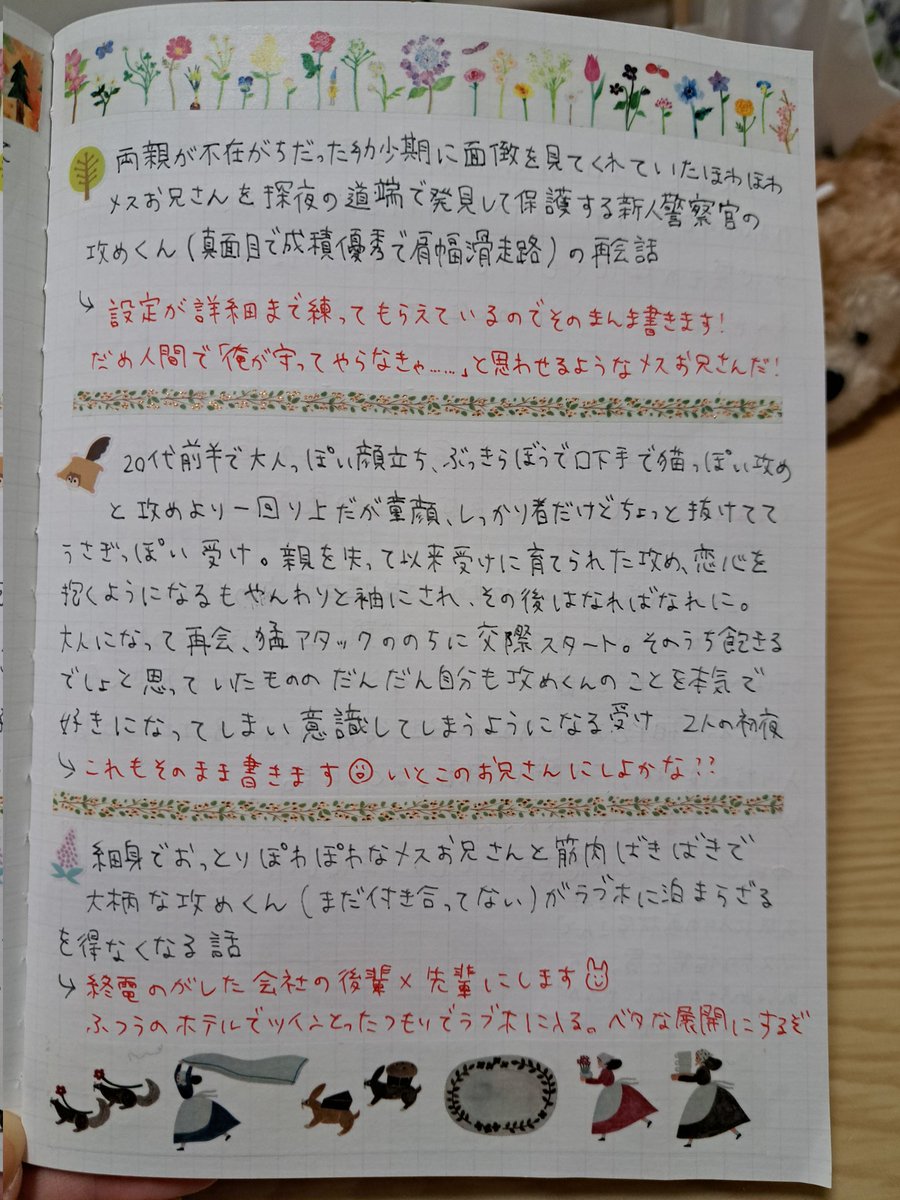 両親が不在がちだった幼少期に面倒を見てくれていたほわほわ
メスお兄さんを深夜の道端で発見して保護する新人警察官の
攻めくん(真面目で成積優秀で肩幅滑走路)の再会話
↳ 設定が詳細まで練ってもらえているのでそのまんま書きます!
だめ人間で「俺が守ってやらなきゃ……」と思わせるようなメスお兄さんだ!
20代前半で大人っぽい顔立ち、ぶっきらぼうで口下手で猫っぽい攻め
と攻めより一回り上だが童顔、しっかり者だけどちょっと抜けてて
うさぎっぽい受け。親を失って以来受けに育てられた攻め、恋心を
抱くようになるもやんわりと袖にされ、その後はなればなれに。
大人になって再会、猛アタックののちに交際スタート。そのうち飽きる
でしょと思っていたもののだんだん自分も攻めくんのことを本気で
好きになってしまい意識してしまうようになる受け 2人の初夜
↳ これもそのまま書きます☺ いとこのお兄さんにしよかな??
細身でおっとりぽわぽわなメスお兄さんと筋肉ばきばきで
大柄な攻めくん(まだ付き合ってない)がラブホに泊まらざる
を得なくなる話
↳ 終電のがした会社の後輩×先輩にします
ふつうのホテルでツインとったつもりでラブホに入る。ベタな展開にするぞ